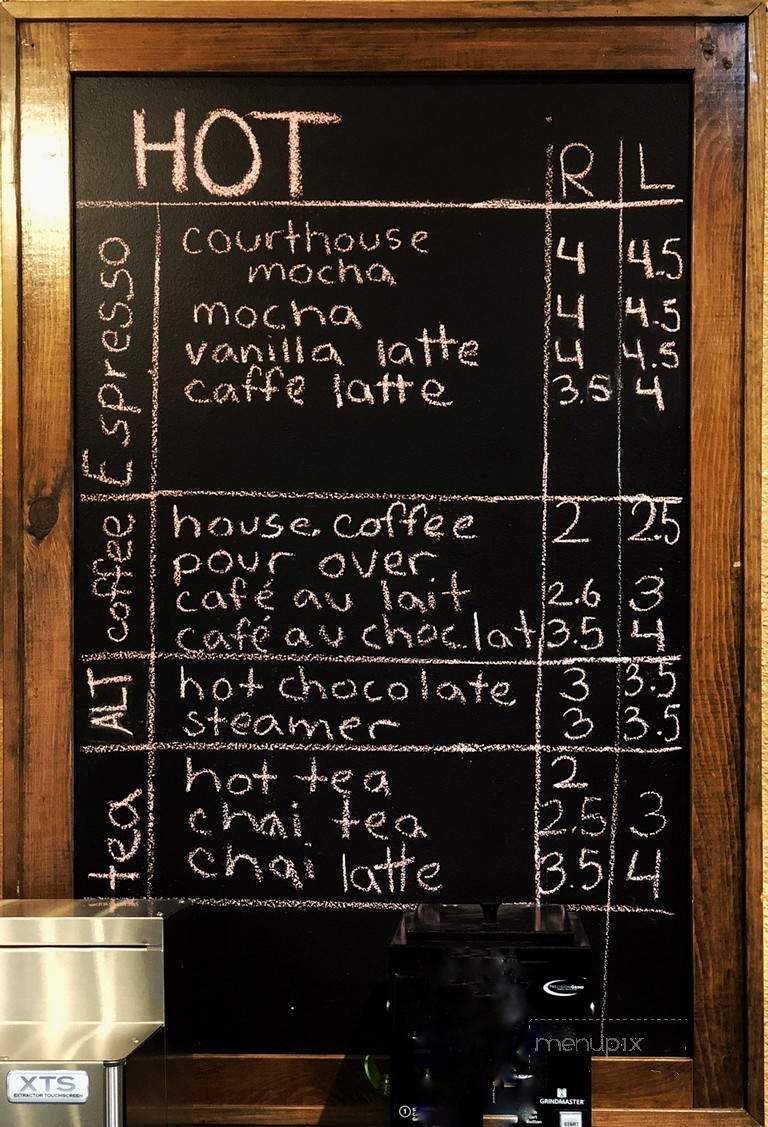 HOT R L
Espresso
courthouse
mocha 4 4.5
mocha 4 4.5
vanilla latte 4 4.5
caffe latte 3.5 4
coffee
house coffee 2 2.5
pour over
café au lait 2.6 3
café au choclat 3.5 4
ALT
hot chocolate 3 3.5
steamer 3 3.5
tea
hot tea 2
chai tea 2.5 3
chai latte 3.5 4
menupix
XTS
EXTRACTOR TOUCHSCREEN
GRINDMASTER
1
START